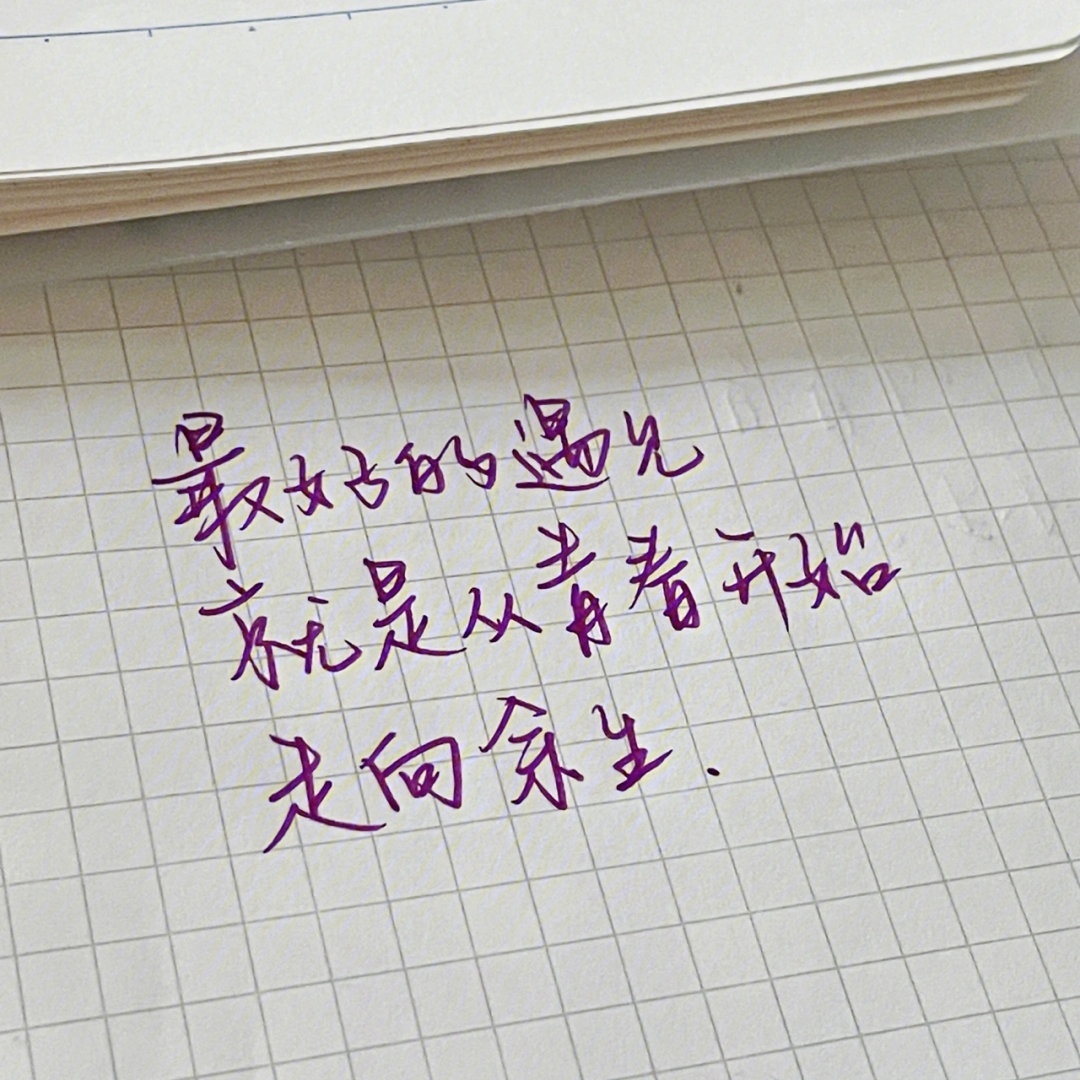 最好的遇见
就是从青春开始
走向余生.